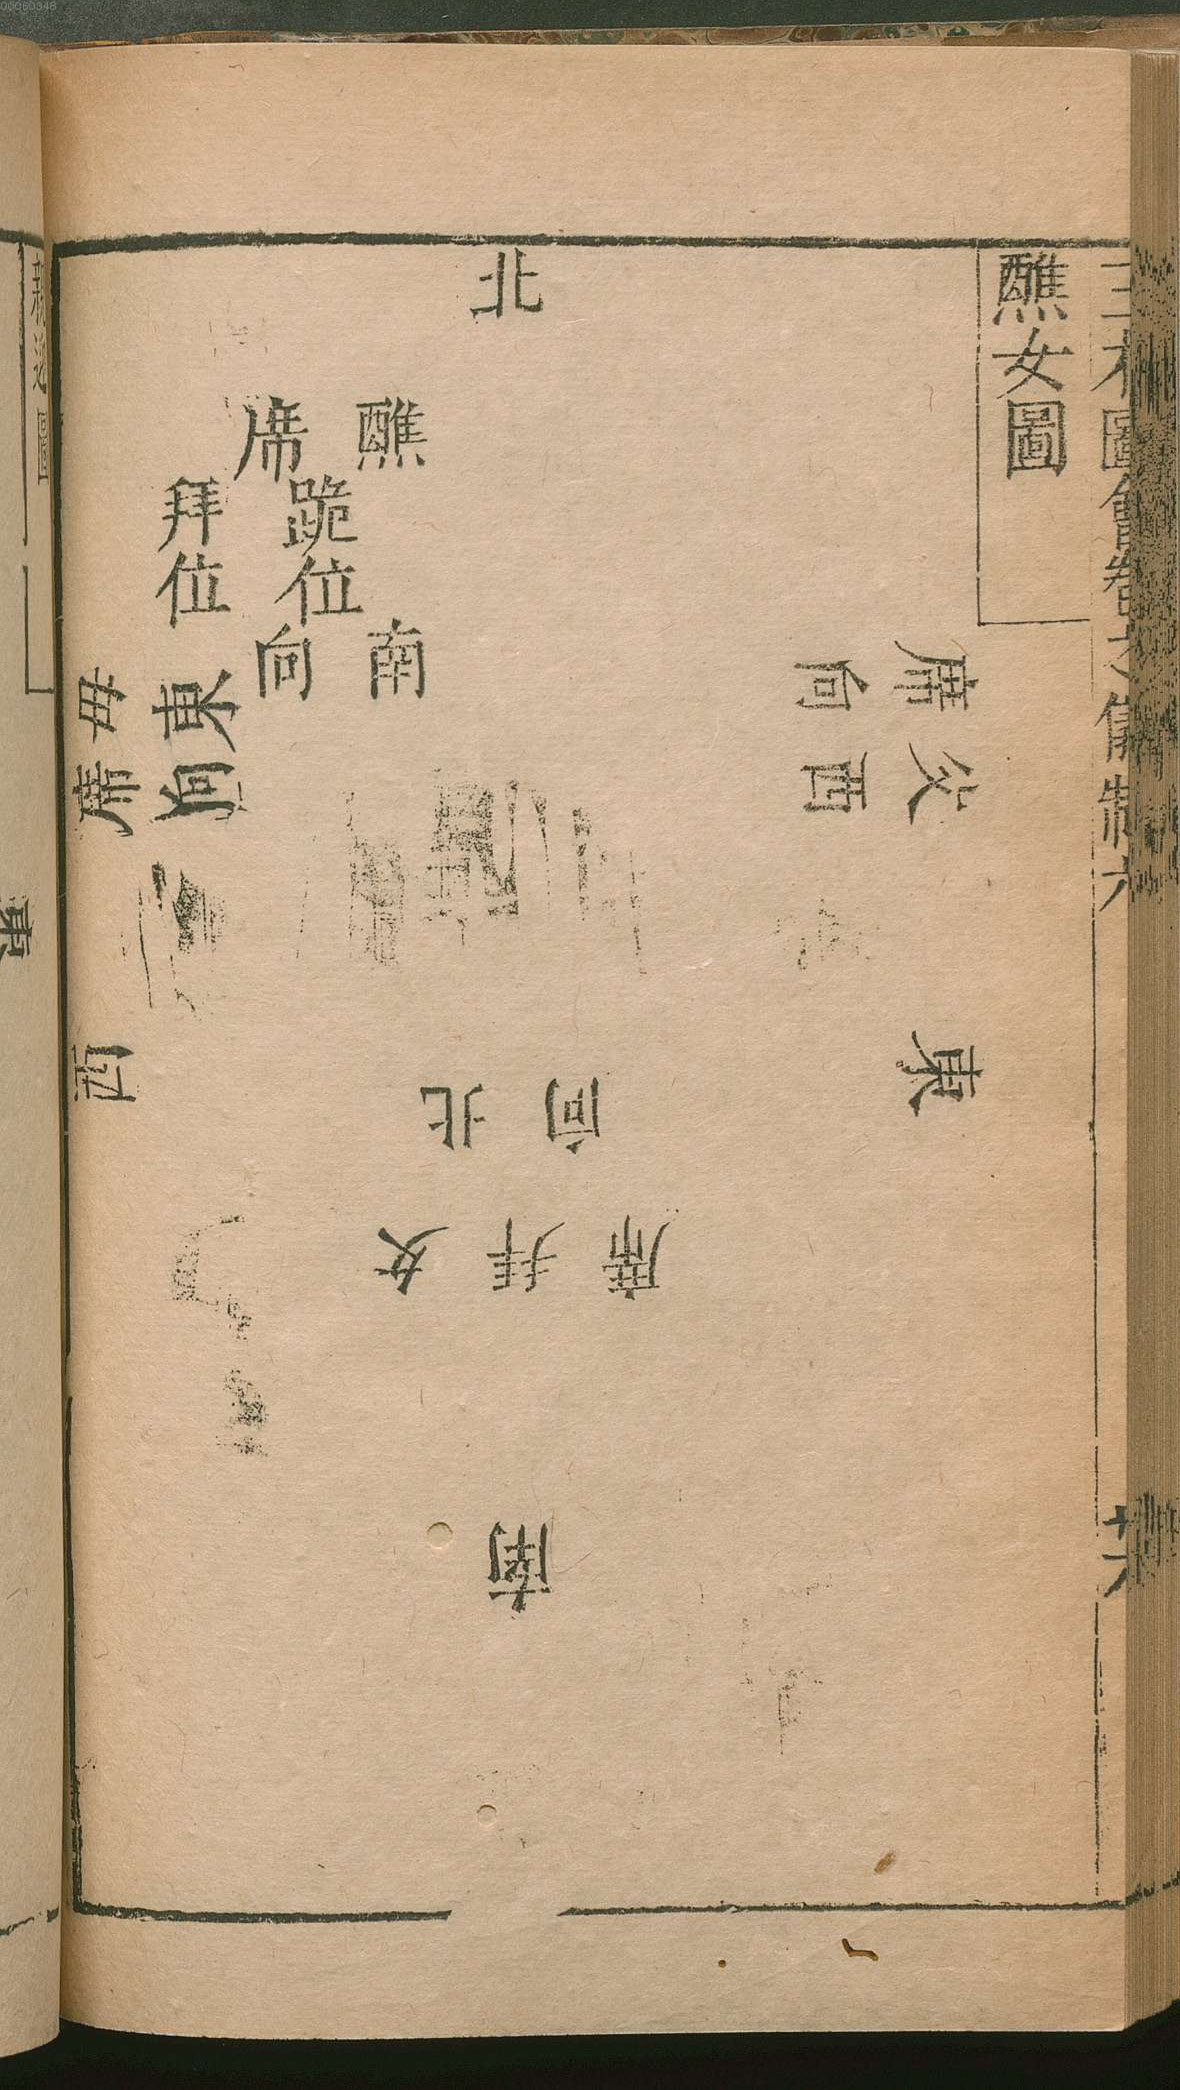 三才圖會
儀制六
醮女圖
北
醮席
跪位
拜位
南向
父席
西向
母席
東向
東
西
北向
女拜席
南
親迎圖
東
00080348